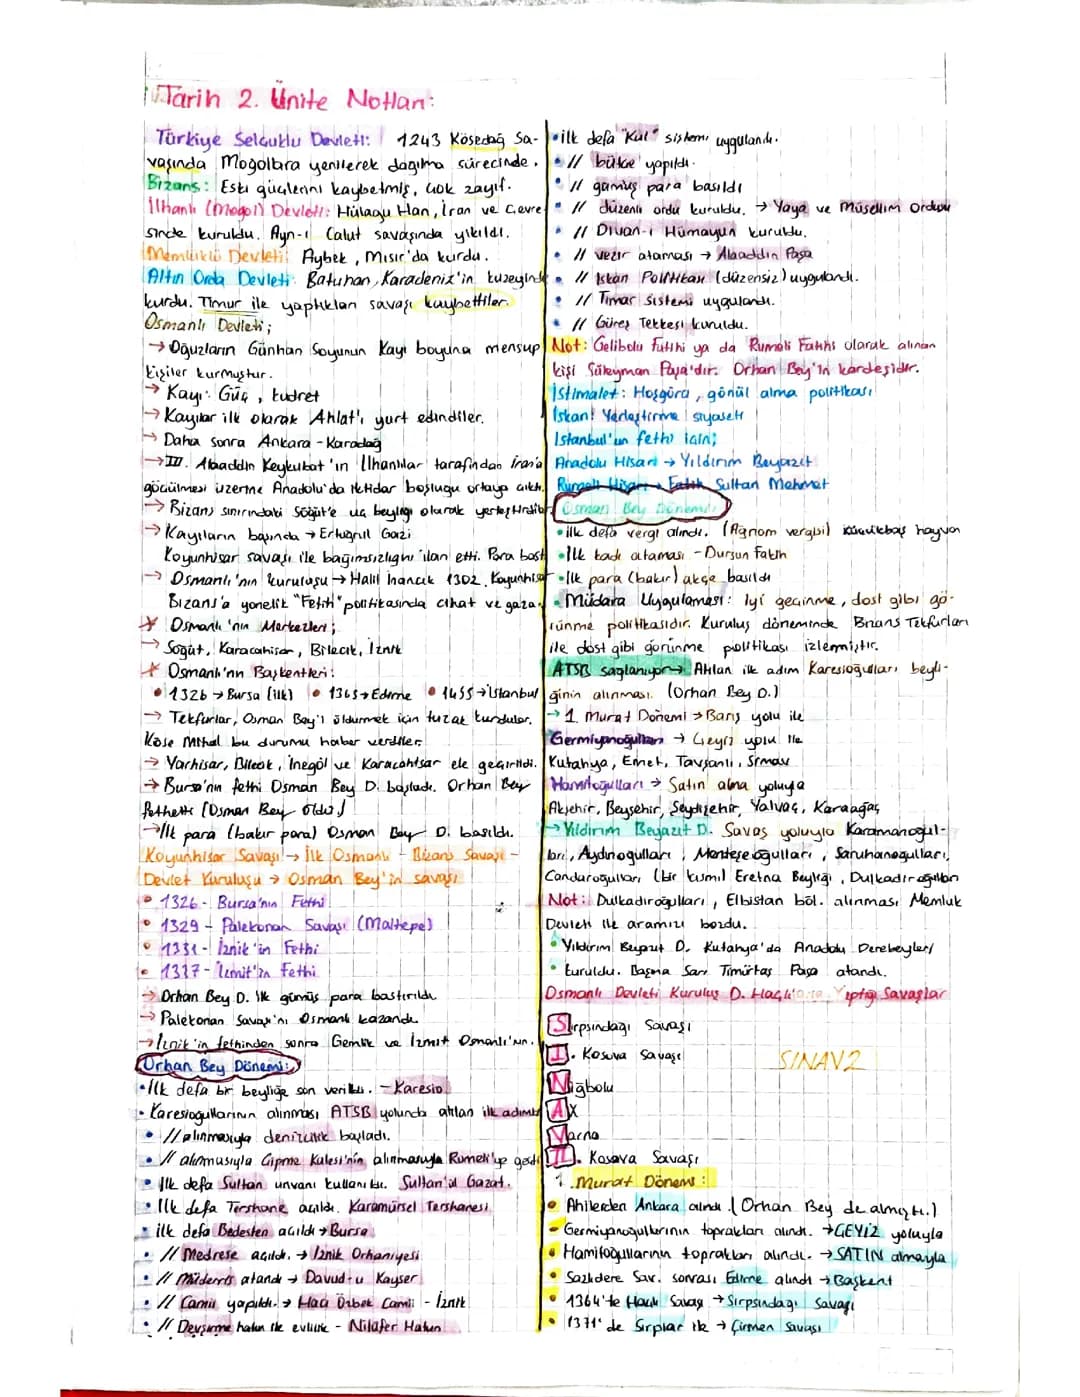 Tarih 2. Ünite Notları:
Türkiye Selçuklu Devleti: 1243 Kösedağ Sa-
vaşında Moğollara yenilerek dağılma sürecinde.
Bizans: Eski güçlerini kaybetmiş, çok zayıf.
İlhanlı (Moğol) Devleti: Hülagu Han, İran ve Çevre
sinde kuruldu. Ayn-ı Calut savaşında yıkıldı.
Memlüklü Devleti: Aybek, Mısır'da kurdu.
Altın Orda Devleti: Batuhan, Karadeniz'in kuzeyinde
kurdu. Timur ile yaptıkları savaşı kaybettiler.
Osmanlı Devleti;
→ Oğuzların Günhan Soyunun Kayı boyuna mensup
kişiler kurmuştur.
→ Kayı: Güç, kudret
→ Kayılar ilk olarak Ahlat'ı yurt edindiler.
→ Daha sonra Ankara - Karadağ
→ III. Alaaddin Keykubat'ın İlhanlılar tarafından İran'a
göçülmesi üzerine Anadolu'da iktidar boşluğu ortaya çıktı.
→ Bizans sınırındaki Söğüt'e uç beyliği olarak yerleştirdiler
→ Kayıların başında → Ertuğrul Gazi
Koyunhisar savaşı ile bağımsızlığını ilan etti. Para bastı
→ Osmanlı'nın kuruluşu → Halil İnancık 1302. Koyunhisar
Bizans'a yönelik "Fetih" politikasında cihat ve gaza.
* Osmanlı'nın Merkezleri;
→ Söğüt, Karacahisar, Bilecik, İznik
* Osmanlı'nın Başkentleri:
• 1326 → Bursa (ilk) • 1363 → Edirne • 1455 → İstanbul
→ Tekfurlar, Osman Bey'i öldürmek için tuzak kurdular.
Köse Mihal bu durumu haber verdiler.
→ Yarhisar, Bilecik, İnegöl ve Karacahisar ele geçirildi.
→ Bursa'nın fethi Osman Bey D. başladı. Orhan Bey
fethetti (Osman Bey öldü)
→ İlk para (bakır para) Osman Bey D. basıldı.
Koyunhisar Savaşı → İlk Osmanlı - Bizans Savaşı -
Devlet Kuruluşu → Osman Bey'in savaşı
• 1326 - Bursa'nın Fethi
• 1329 - Palekonan Savaşı (Maltepe)
• 1331 - İznik'in Fethi
• 1337 - İzmit'in Fethi
→ Orhan Bey D. ilk gümüş para bastırıldı
→ Palekonan savaşı'nı Osmanlı kazandı
→ İznik'in fethinden sonra Gemlik ve İzmit Osmanlı'nın.
Orhan Bey Dönemi:
• İlk defa bir beyliğe son verildi. - Karesio
• Karesioğullarının alınması ATSB yolunda atılan ilk adımdı
• // alınmasıyla denizcilik başladı.
• // alınmasıyla Çipme Kalesi'nin alınmasıyla Rumeli'ye geçti
• İlk defa Sultan unvanı kullanıldı. Sultan'ül Gazat.
• İlk defa Tershane açıldı. Karamürsel Tershanesi
• ilk defa Bedesten açıldı → Bursa
• // Medrese açıldı. → İznik Orhaniyesi
• // Müderris atandı → Davud-u Kayser
• // Camii yapıldı. → Hacı Özbek Camii - İznik
• // Devşirme hatun ile evlilik - Nilüfer Hatun
• ilk defa "Kul" sistemi uygulandı.
• // bütçe yapıldı.
• // gümüş para basıldı
• // düzenli ordu kuruldu. → Yaya ve Müsellim Ordusu
• // Divan-ı Hümayun kuruldu.
• // vezir ataması → Alaaddin Paşa
• // İskan Politikası (düzensiz) uygulandı.
• // Tımar Sistemi uygulandı.
• // Güreş Tekkesi kuruldu.
Not: Gelibolu Fatihi ya da Rumeli Fatihi olarak alınan
kişi Süleyman Paşa'dır. Orhan Bey'in kardeşidir.
İstimalet: Hoşgörü, gönül alma politikası
İskan: Yerleştirme siyaseti
İstanbul'un fethi için;
Anadolu Hisarı → Yıldırım Beyazıt
Rumeli Hisarı → Fatih Sultan Mehmet
Osman Bey Dönemi:
• ilk defa vergi alındı. (Ağnom vergisi) küçükbaş hayvan
• ilk kadı ataması - Dursun Fakih
• ilk para (bakır) akçe basıldı
• Müdara Uygulaması: iyi geçinme, dost gibi gö-
rünme politikasıdır. Kuruluş döneminde Bizans Tekfurları
ile dost gibi görünme politikası izlenmiştir.
ATSB sağlanıyor → Atılan ilk adım Karesioğulları beyli-
ğinin alınması. (Orhan Bey D.)
→ 1. Murat Dönemi → Barış yolu ile
Germiyanoğulları → Çeyiz yolu ile
Kütahya, Emet, Tavşanlı, Simav
Hamitoğulları → Satın alma yoluyla
Akşehir, Beyşehir, Seydişehir, Yalvaç, Karaağaç
→ Yıldırım Beyazıt D. Savaş yoluyla Karamanoğul-
ları, Aydınoğulları, Menteşeoğulları, Saruhanoğulları,
Candaroğulları (bir kısmı) Eretna Beyliği, Dulkadiroğulları
Not: Dulkadiroğulları, Elbistan böl. alınması Memluk
Devleti ile aramızı bozdu.
• Yıldırım Beyazıt D. Kütahya'da Anadolu Derebeyleri
• kuruldu. Başına Sarı Timurtaş Paşa atandı.
Osmanlı Devleti Kuruluş D. Haçlılarla Yaptığı Savaşlar
Sırpsındağı Savaşı
I. Kosova Savaşı
SINAV2
Niğbolu
AX
Varna
II. Kosova Savaşı
1. Murat Dönemi:
• Ahilerden Ankara alındı. (Orhan Bey de almıştı.)
• Germiyanoğullarının toprakları alındı. → ÇEYİZ yoluyla
• Hamitoğullarının toprakları alındı. → SATIN almayla
• Sazlıdere Sav. sonrası Edirne alındı → Başkent
• 1364'te Haçlı Savaşı → Sırpsındağı Savaşı
• 1371'de Sırplar ile → Çirmen savaşı